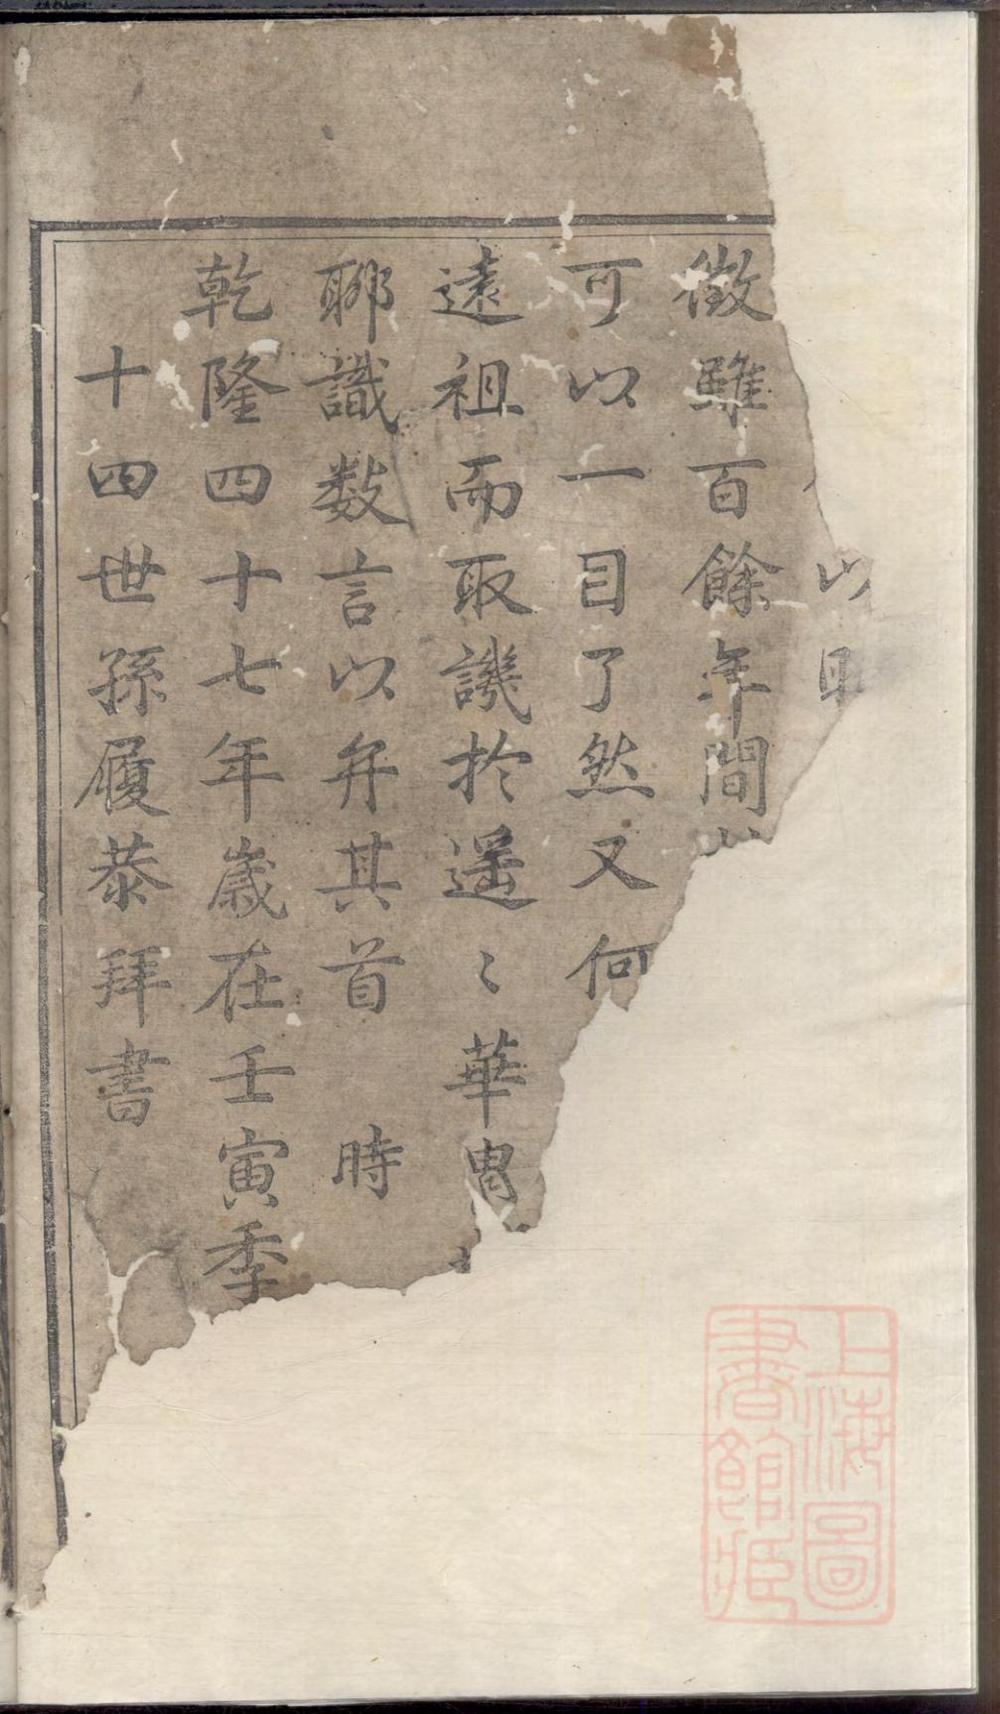 以昭
徵雖百餘年間
可以一目了然又何
遠祖而取譏於遥〻華胄
聊識数言以弁其首　時
乾隆四十七年歲在壬寅季
十四世孫履恭拜書
上海圖
書館藏